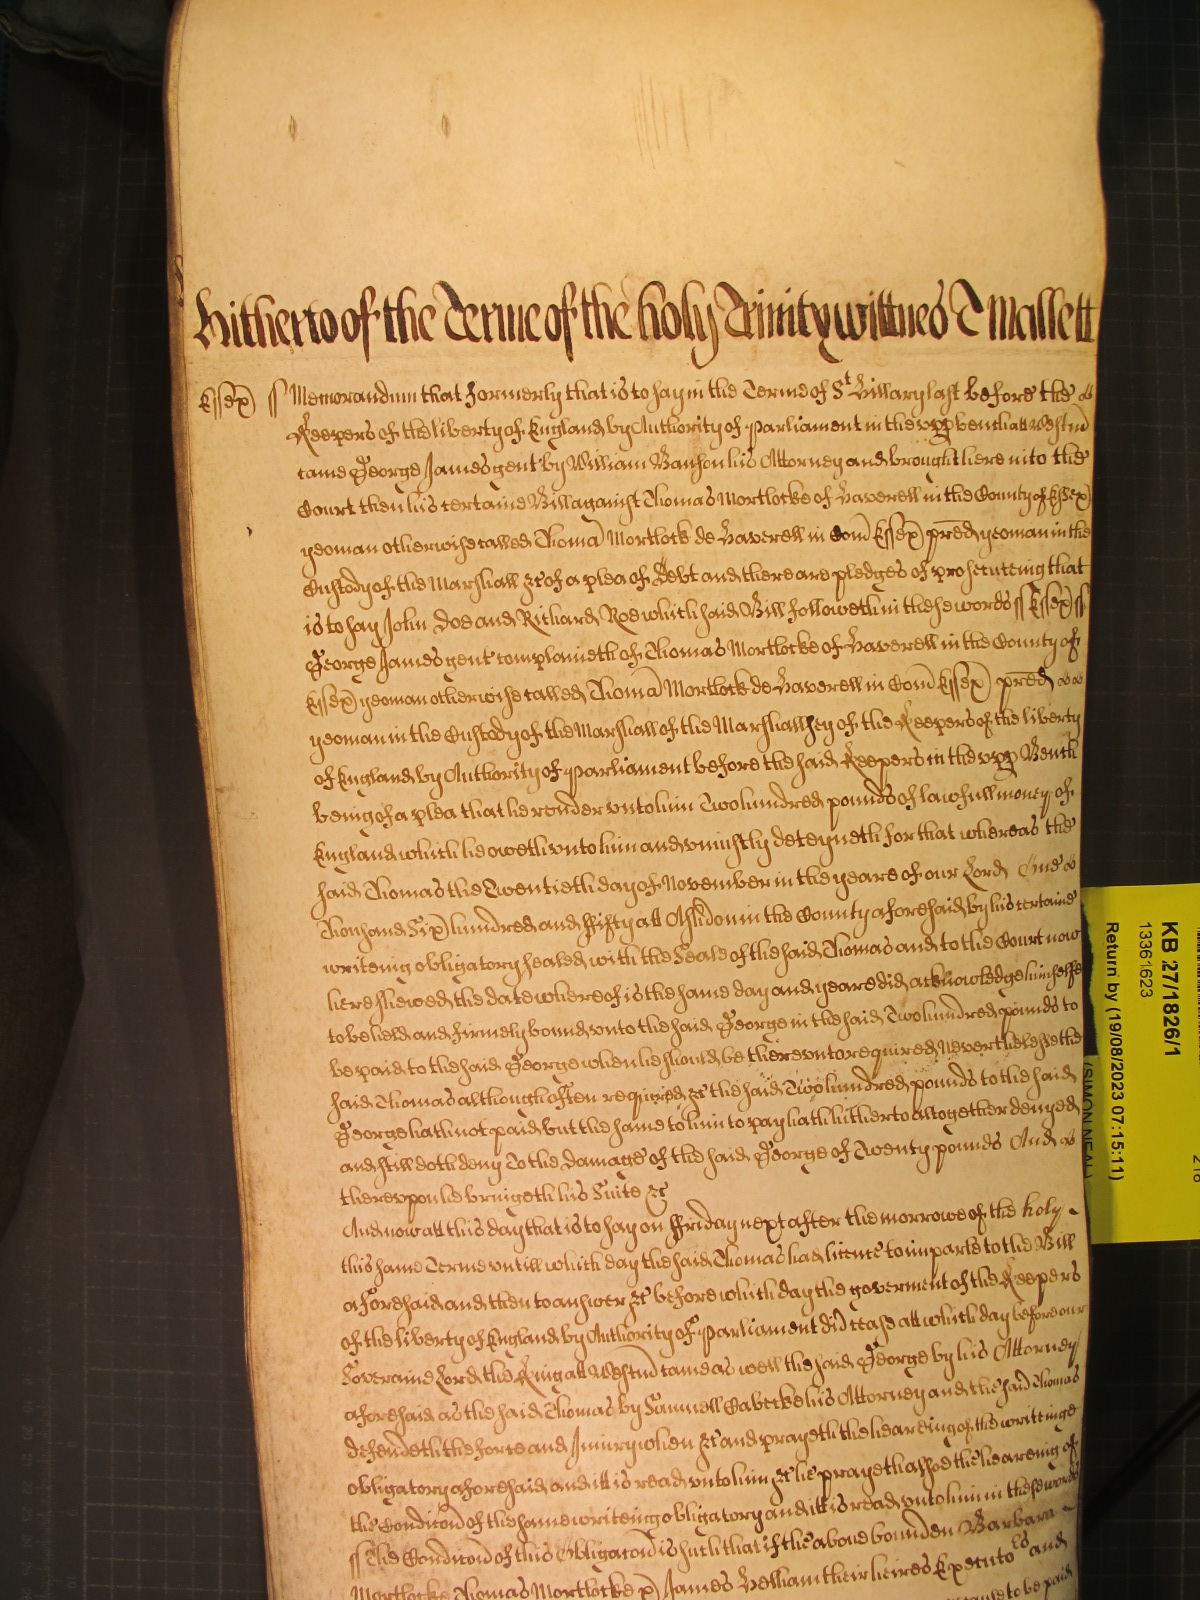 Hitherto of the Terme of the holy Trinity wittnes T Mallett
Essex ss Memorandum that Formerly that is to say in the Terme of St Hillary last before the
Keepers of the liberty of England by Authority of Parliament in the upp bench att Westm
came George James gent by William Banson his Attorney and brought here into the
Court then his certaine Bill against Thomas Mortlocke of Haverell in the County of Essex
yeoman otherwise called Thoma Mortlock de Haverell in Com Essex pred yeoman in the
Custody of the Marshall &c of a plea of Debt and there are pledges of prosecuteing that
is to say John Doe and Richard Roe which said Bill followeth in these words ss Essex ss
George James gent complaineth of Thomas Mortlocke of Haverell in the County of
Essex yeoman otherwise called Thoma Mortlock de Haverell in Com Essex pred
yeoman in the Custody of the Marshall of the Marshallsey of the Keepers of the liberty
of England by Authority of Parliament before the said Keepers in the upp Bench
being of a plea that he render unto him Two hundred pounds of lawfull money of
England which he oweth unto him and uniustly deteyneth for that whereas the
said Thomas the Twentieth day of November in the yeare of our Lord One
Thousand Six hundred and Fifty att Ashdon in the County aforesaid by his certaine
writeing obligatory sealed with the Seale of the said Thomas and to the Court now
here shewed the date whereof is the same day and yeare did acknowledge himselfe
to be held and firmely bound unto the said George in the said Two hundred pounds to
be paid to the said George when he should be thereunto required Neverthelesse the
said Thomas although often required &c the said Two hundred pounds to the said
George hath not paid but the same to him to pay hath hitherto altogether denyed
and still doth deny To the Damage of the said George of Twenty pounds And
thereupon he bringeth his Suite &c
And now att this day that is to say on Friday next after the morrowe of the holy
this same Terme untill which day the said Thomas had licence to imparle to the Bill
aforesaid and then to answer &c before which day the goverment of the Keepers
of the liberty of England by Authority of Parliament did cease att which day before our
Soveraine Lord the King att Westm came as well the said George by his Attorney
aforesaid as the said Thomas by Samuell his Attorney and the said Thomas
defendeth the force and Iniury when &c and prayeth the heareing of the writeinge
obligatory aforesaid and itt is read unto him &c he prayeth allsoe the heareing of
the Condicon of the same writeing obligatory and itt is read unto him in these words
ss The Condicon of this Obligacon is such that if the above bounden Barbara
Mortlocke Thomas Mortlocke James their heires Executors and
to be paid
KB 27/1826/1
13361623
Return by (19/08/2023 07:15:11)
(SIMON NEAL)